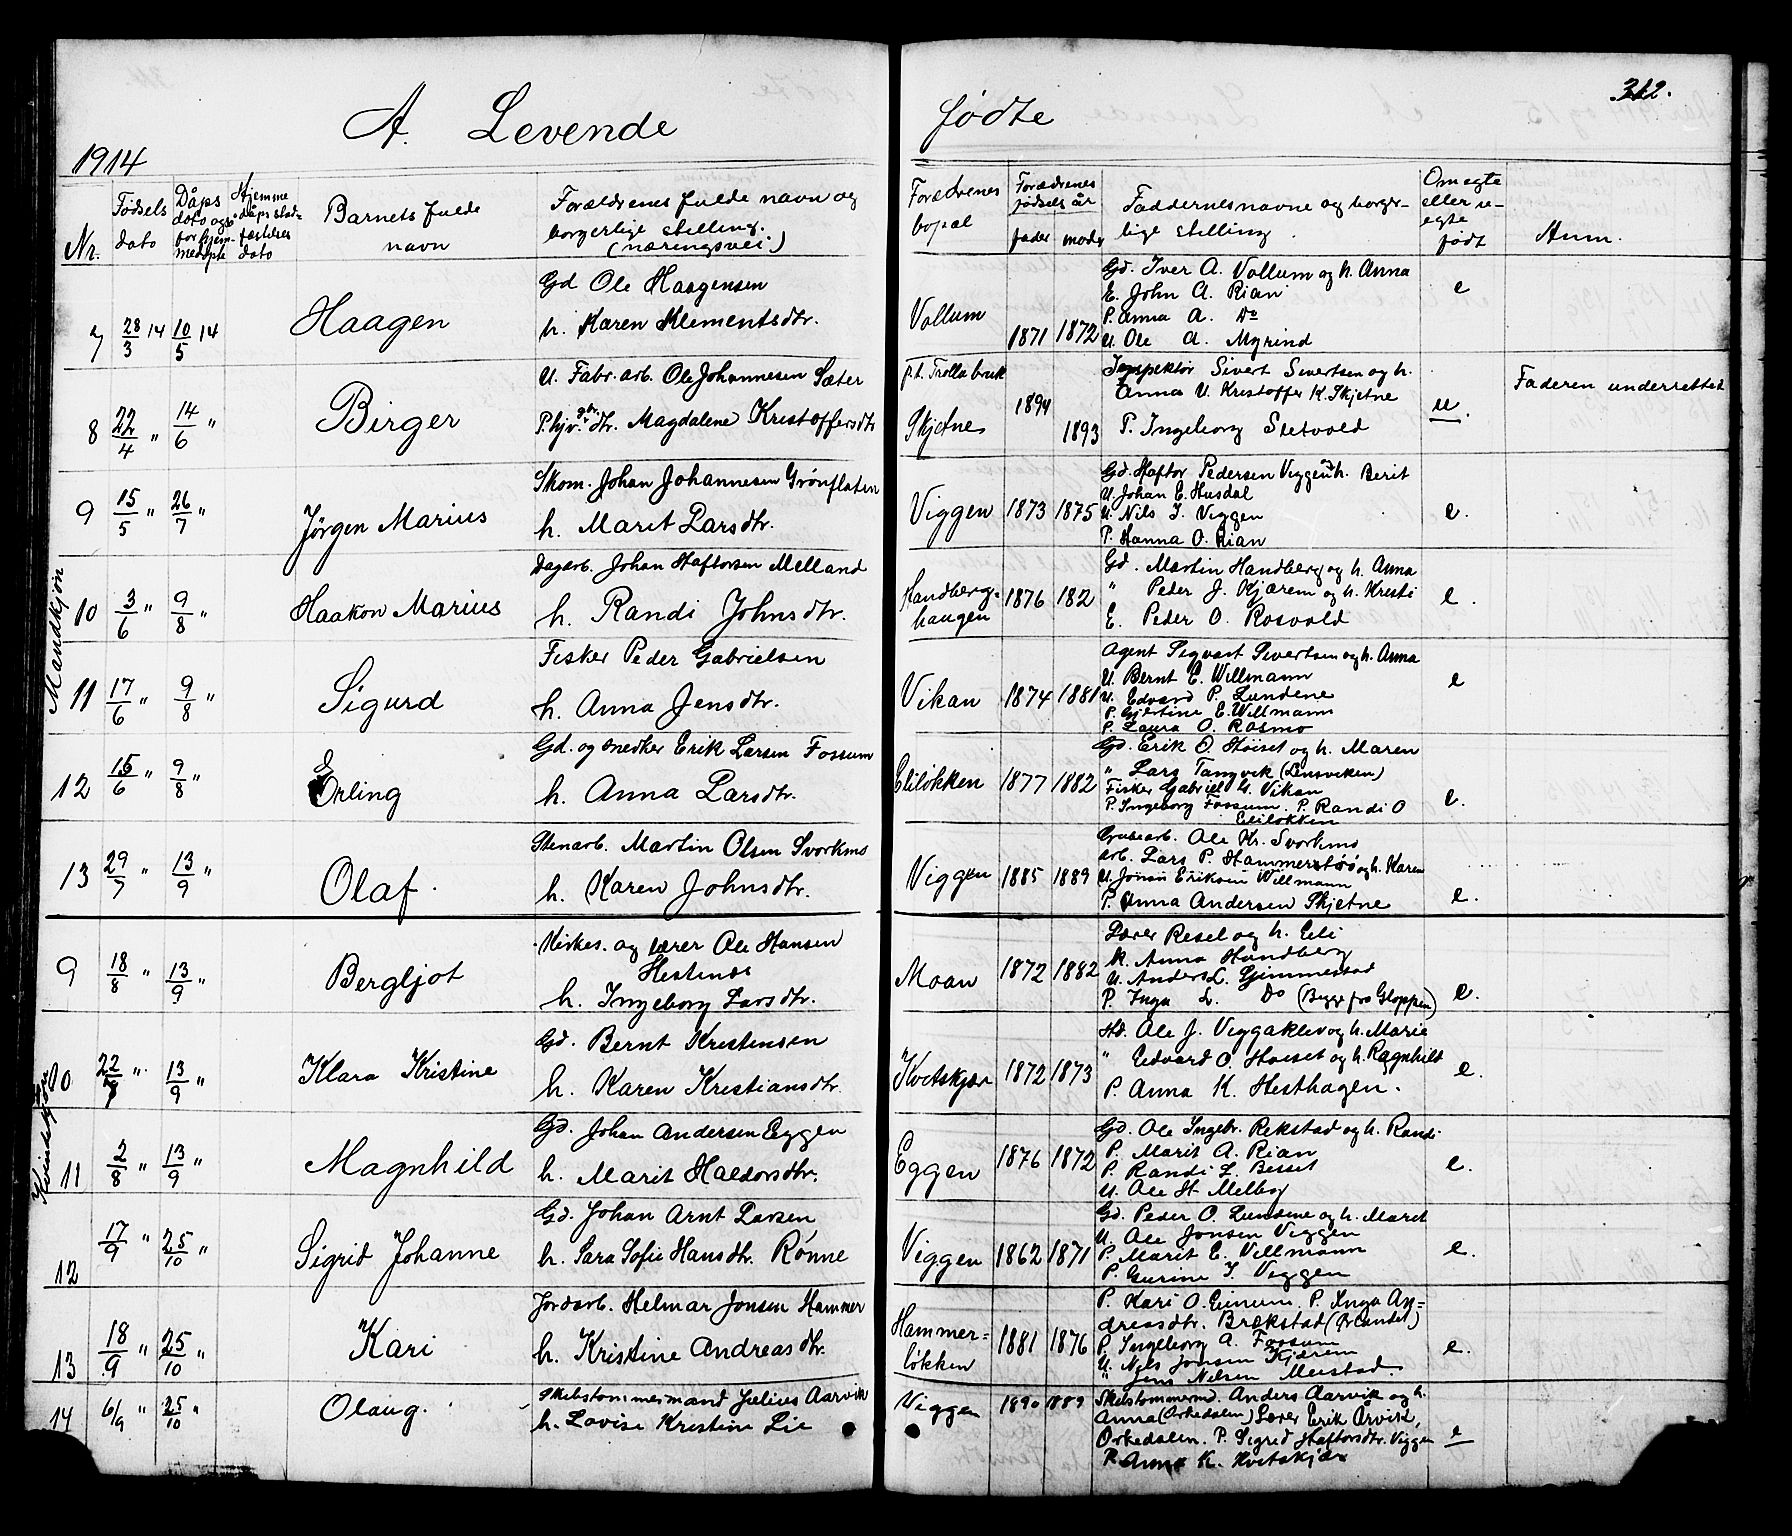 A. Levende fødte
312.
1914
Nr.
Fødsels dato
Dåps dato også for hjem- medøpte
Hjemme dåps stad- fæstelses dato
Barnets fulde navn
Forældrenes fulde navn og borgerlige stilling. (næringsvei)
Forædrenes bopæl
Forædrenes fødsels år
fader moder
Faddernes navne og borger- lige stilling.
Om egte eller u- egte født
Anm.
Mandkjøn
7 28/3 14 10/5 14 Haagen
Gd Ole Haagensen
h. Karen Klementsdtr.
Vollum 1871 1872
Gd. Iver A. Vollum og h. Anna
E. John A. Rian
P. Anna A. Do
U. Ole A. Myrind
e
8 22/4 " 14/6 " Birger
U. Fabr. arb. Ole Johannesen Sæter
P. hjv. gbr. dtr. Magdalene Kristoffersdtr
p.t. Trolla bruk
Skjetne 1894 1893
Inspektør Sivert Sivertsen og h.
Anna U. Kristoffer K. Skjetne
P. Ingeborg Stetvold
u.
Faderen underrettet
9 15/5 " 26/7 " Jørgen Marius
Skom. Johan Johannesen Grønflaten
h. Marit Larsdtr.
Viggen 1873 1875
Gd. Haftor Pedersen Viggen og h. Berit
U. Johan E. Husdal
U. Nils I. Viggen
P. Hanna O. Rian
e.
10 3/6 " 9/8 " Haakon Marius
Dagarb. Johan Haftorsen Melland
h. Randi Johnsdtr.
Handberg- haugen 1876 182
Gd. Martin Handberg og h. Anna
" Peder J. Kjærem og h. Kristi
E. Peder O. Rosvold
e.
11 17/6 " 9/8 " Sigurd
Fisker Peder Gabrielsen
h. Anna Jensdtr.
Vikan 1874 1881
Agent Sigvart Sivertsen og h. Anna
U. Bernt E. Willmann
U. Edvard P. Lundene
P. Gjertine E. Willmann
P. Laura O. Rosmo
e
12 15/6 " 9/8 " Erling
Gd. og snedker Erik Larsen Fossum
h. Anna Larsdtr.
Eliløkken 1877 1882
Gd. Erik O. Høiset og h. Maren
" Lars Tangvik (Lensviken)
Fisker Gabriel G. Vikan
P. Ingeborg Fossum. P. Randi O
Eliløkken
e.
13 29/7 " 13/9 " Olaf.
Stenarb. Martin Olsen Svorkmo
h. Karen Johnsdtr.
Viggen 1885 1889
Grubearb. Ole Kr. Svorkmo
arb. Lars P. Hammerstrø og h. Karen
U. Jonas Eriksen Willmann
P. Anna Andersen Skjetne
e.
Kvindekjøn
9 18/8 " 13/9 " Bergljot
Kirkes. og lærer Ole Hansen
Hestenes
h. Ingeborg Larsdtr.
Moan 1872 1882
Lærer Resel og h. Eli
K. Anna Handberg
U. Anders L. Gjimmestad
P. Inga L. Do (Begge fra Gloppen)
e.
10 22/8 " 13/9 " Klara Kristine
Gd. Bernt Kristensen
h. Karen Kristiansdtr.
Kvitskjær 1872 1873
Hd. Ole J. Viggaklev og h. Marie
" Edvard O. Høiset og h. Ragnhild
P. Anna K. Hesthagen.
e.
11 2/8 " 13/9 " Magnhild
Gd. Johan Andersen Eggen
h. Marit Haldorsdtr.
Eggen 1876 1872
Gd. Ole Ingebr. Rekstad og h. Randi
P. Marit A. Rian
P. Randi L. Besset
U. Ole H. Melby
e.
12 17/9 " 25/10 " Sigrid Johanne
Gd. Johan Arnt Larsen
h. Sara Sofie Hansdtr. Rønne
Viggen 1862 1871
Gd. Peder O. Lundene og h. Marit
U. Ole Jonsen Viggen
P. Marit E. Villmann
P. Gurine I. Viggen
e.
13 18/9 " 25/10 " Kari
Jordarb. Helmar Jonsen Hammer
h. Kristine Andreasdtr.
Hammer- løkken 1881 1876
P. Kari O. Einum. P. Inga An-
dreasdtr. Brekstad (Ørlandet)
P. Ingeborg A. Fossum
U. Nils Jonsen Kjærem
" Jens Nilsen Meistad
e.
14 6/9 " 25/10 " Olaug.
Skibstømmermand Julius Aarvik
h. Lovise Kristine Lie
Viggen 1890 1889
Skibstømmerm. Anders Aarvik og h.
Anna (Orkedalen) Lærer Erik Årvik,
Orkedalen. P. Sigrid Haftorsdtr. Viggen
P. Anna K. Kvitskjær
e